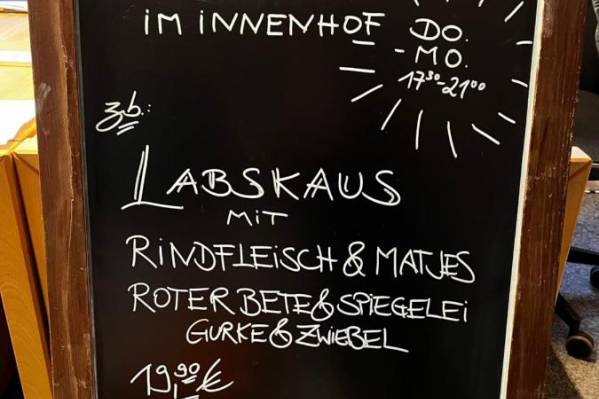 IM INNENHOF
DO.
- MO.
17³⁰-21⁰⁰
z.b.:
LABSKAUS
MIT
RINDFLEISCH & MATJES
ROTER BETE & SPIEGELEI
GURKE & ZWIEBEL
19,90 €